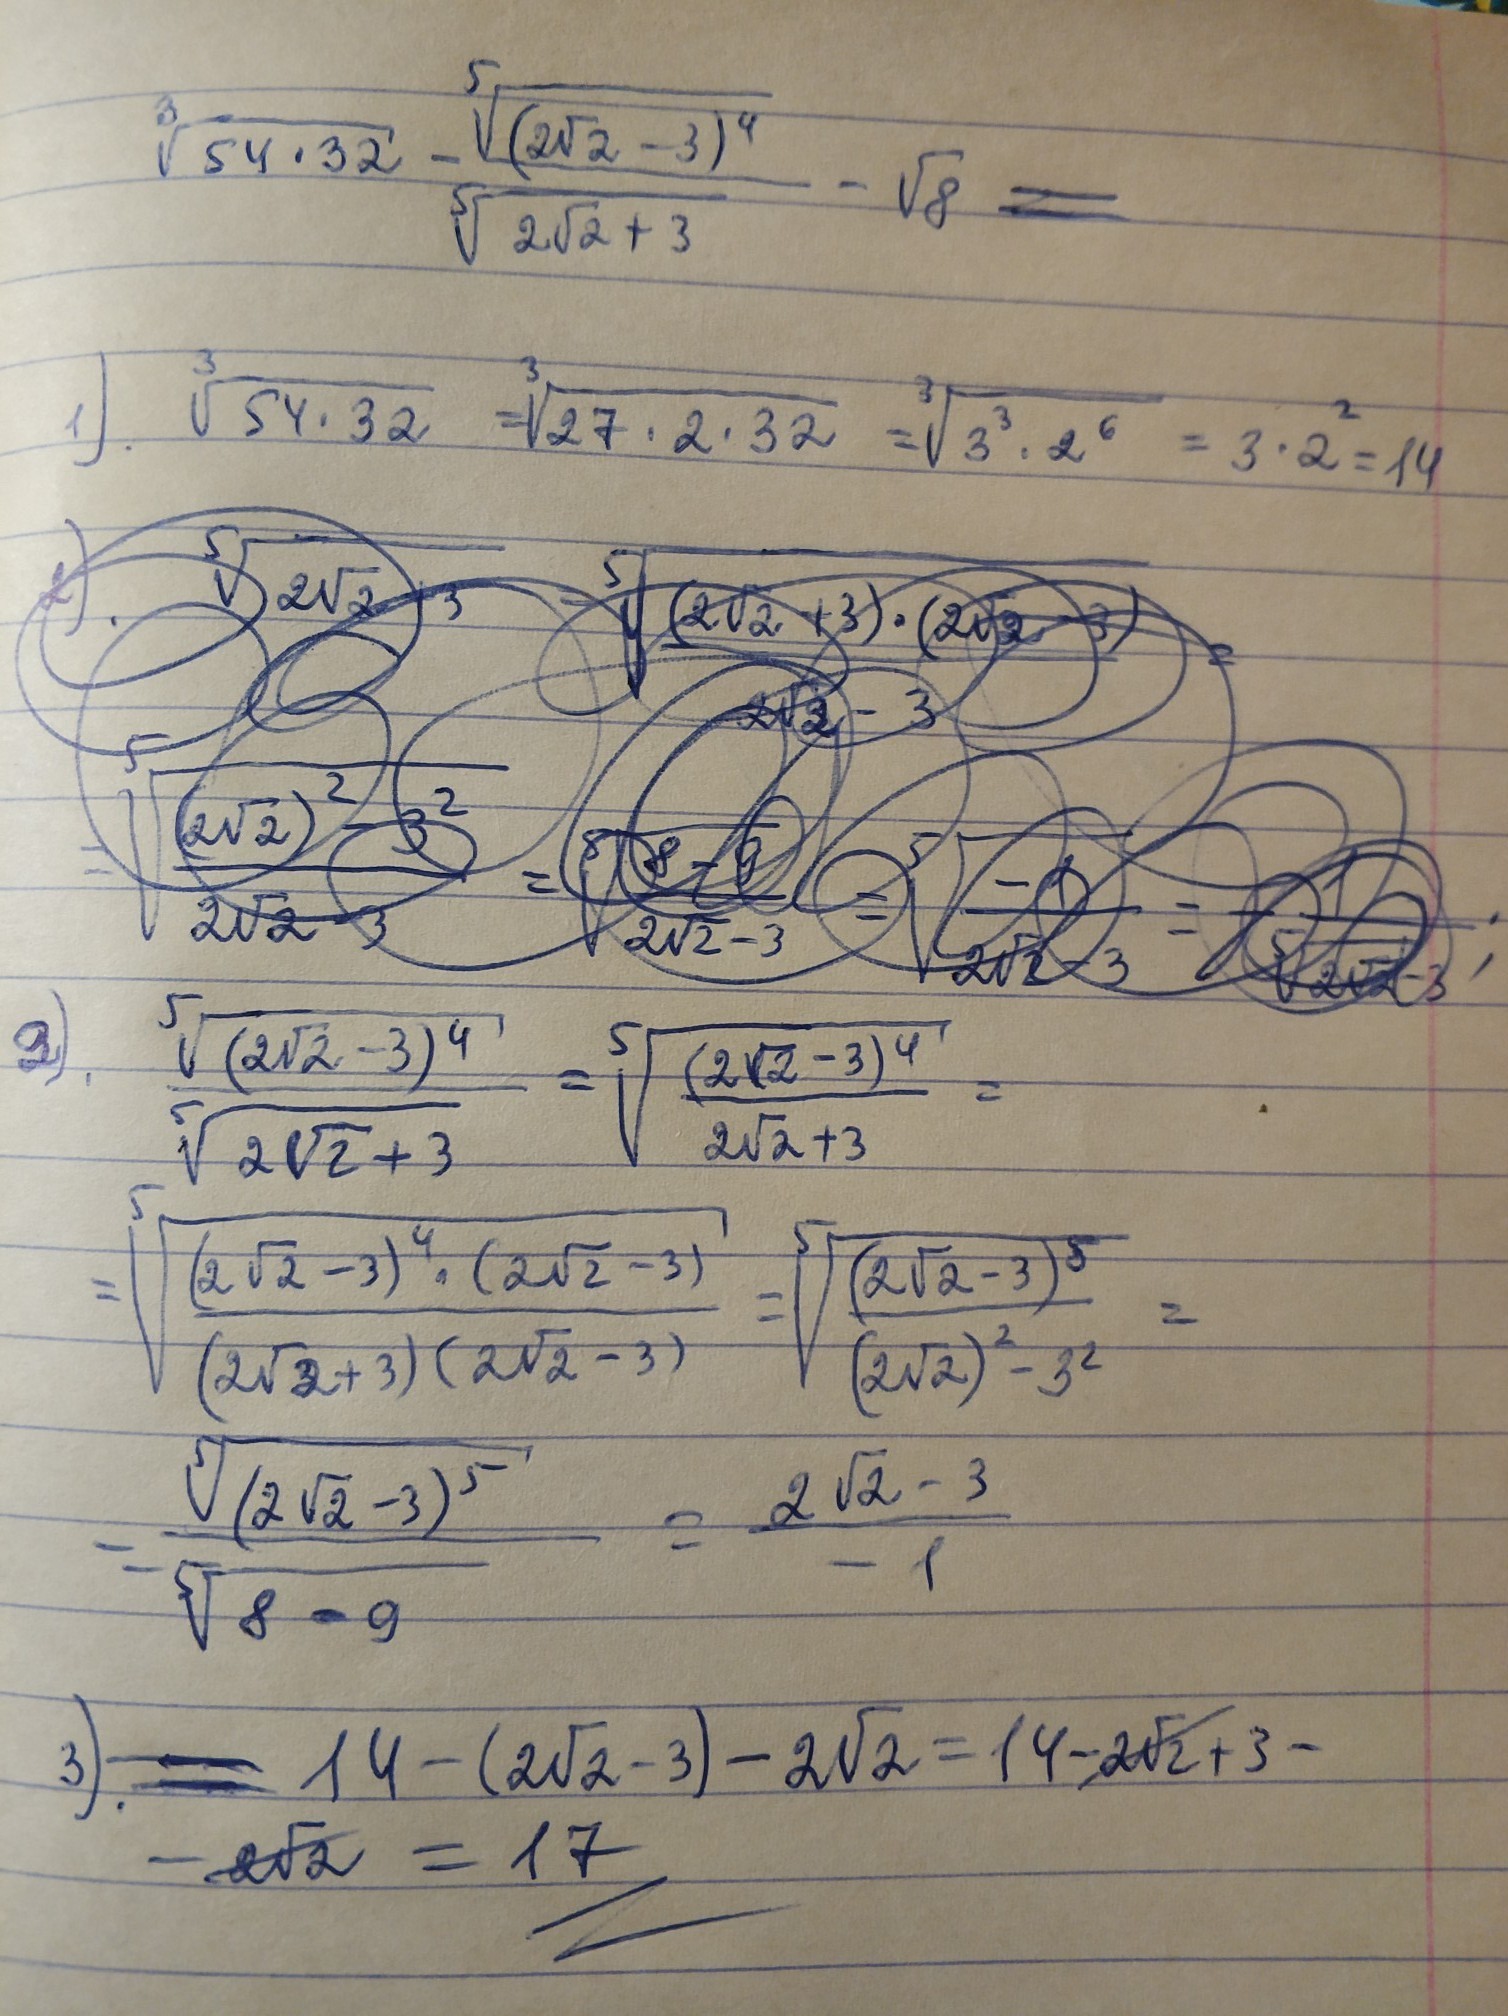 ∛(54·32) − ⁵√((2√2 − 3)⁴) / ⁵√(2√2 + 3) − √8 =
1). ∛(54·32) = ∛(27·2·32) = ∛(3³·2⁶) = 3·2² = 14
2). ⁵√(2√2 + 3) = ⁵√((2√2 + 3)·(2√2 − 3) / (2√2 − 3)) =
= ⁵√(((2√2)² − 3²) / (2√2 − 3)) = ⁵√((8 − 9) / (2√2 − 3)) = ⁵√(−1 / (2√2 − 3)) = − 1 / ⁵√(2√2 − 3) ;
2). ⁵√((2√2 − 3)⁴) / ⁵√(2√2 + 3) = ⁵√((2√2 − 3)⁴ / (2√2 + 3)) =
= ⁵√((2√2 − 3)⁴·(2√2 − 3) / ((2√2 + 3)(2√2 − 3))) = ⁵√((2√2 − 3)⁵ / ((2√2)² − 3²)) =
= ⁵√((2√2 − 3)⁵) / ⁵√(8 − 9) = (2√2 − 3) / (−1)
3). = 14 − (2√2 − 3) − 2√2 = 14 − 2√2 + 3 −
− 2√2 = 17